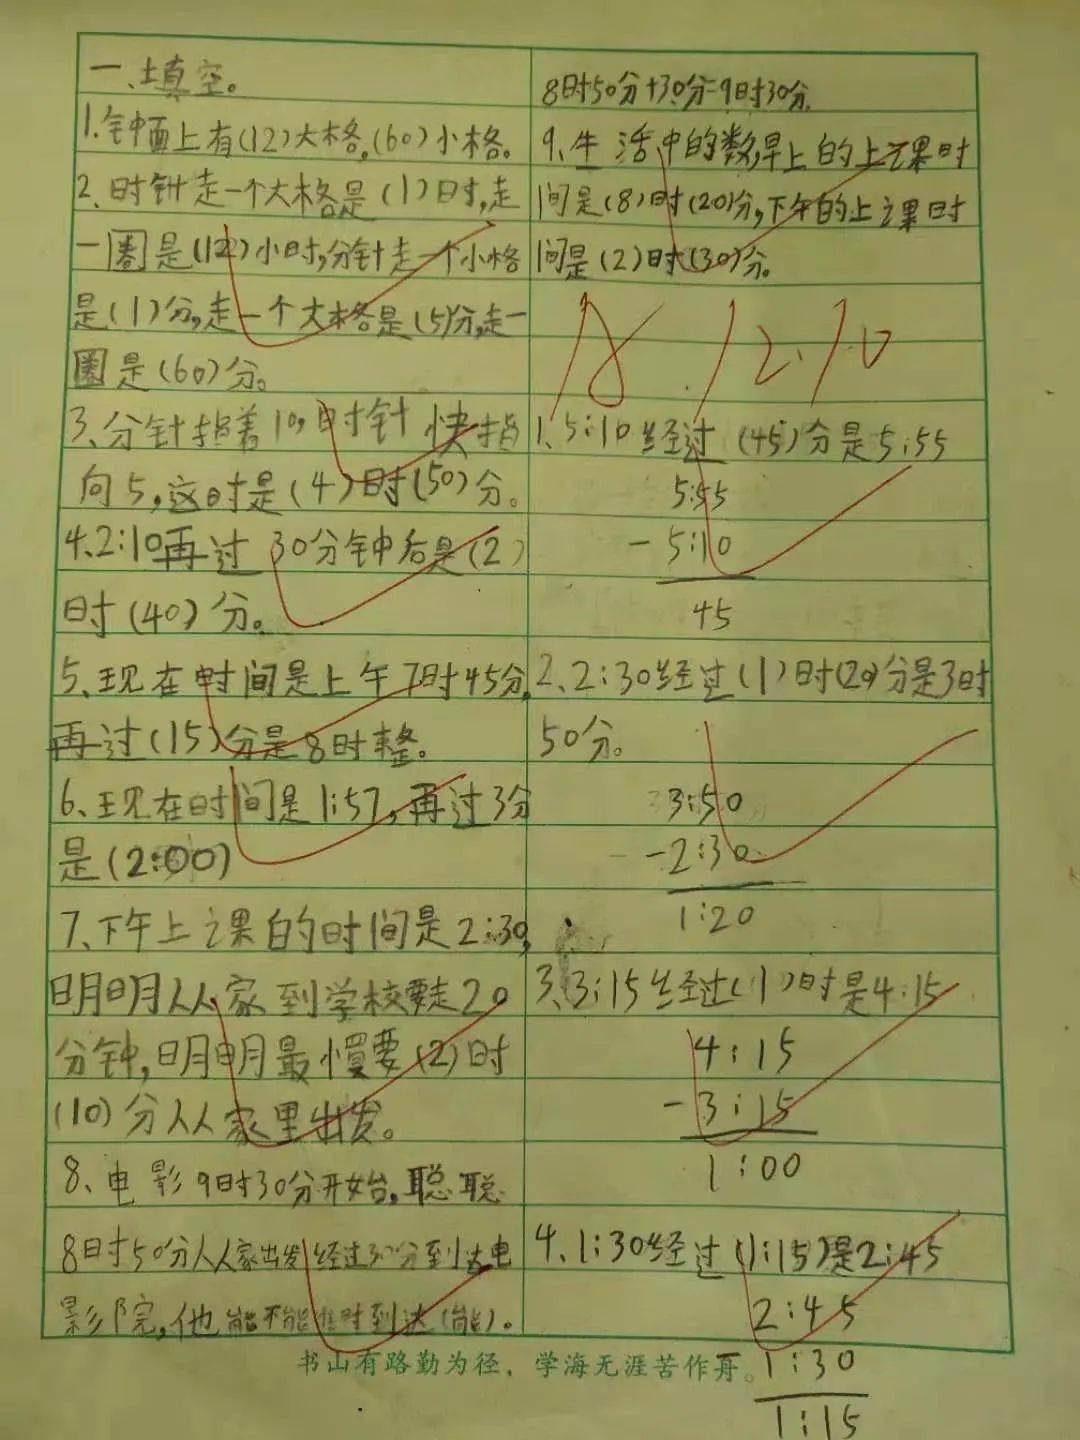 一、填空。
1.钟面上有(12)大格,(60)小格。
2、时针走一个大格是(1)时,走
一圈是(12)小时,分针走一个小格
是(1)分,走一个大格是(5)分,走一
圈是(60)分。
3、分针指着10,时针快指
向5,这时是(4)时(50)分。
4、2:10再过30分钟后是(2)
时(40)分。
5、现在时间是上午7时45分,
再过(15)分是8时整。
6、现在时间是1:57,再过3分
是(2:00)
7、下午上课的时间是2:30,
明明从家到学校要走20
分钟,明明最慢要(2)时
(10)分从家里出发。
8、电影9时30分开始,聪聪
8时50分从家出发,经过30分到达电
影院,他能不能准时到达(能)。
8时50分+30分=9时30分
9、生活中的数,早上的上课时
间是(8)时(20)分,下午的上课时
间是(2)时(30)分。
12.10
1、5:10经过(45)分是5:55
5:55
-5:10
45
2、2:30经过(1)时(20)分是3时
50分。
3:50
-2:30
1:20
3、3:15经过(1)时是4:15
4:15
-3:15
1:00
4、1:30经过(1:15)是2:45
2:45
-1:30
1:15
书山有路勤为径,学海无涯苦作舟。